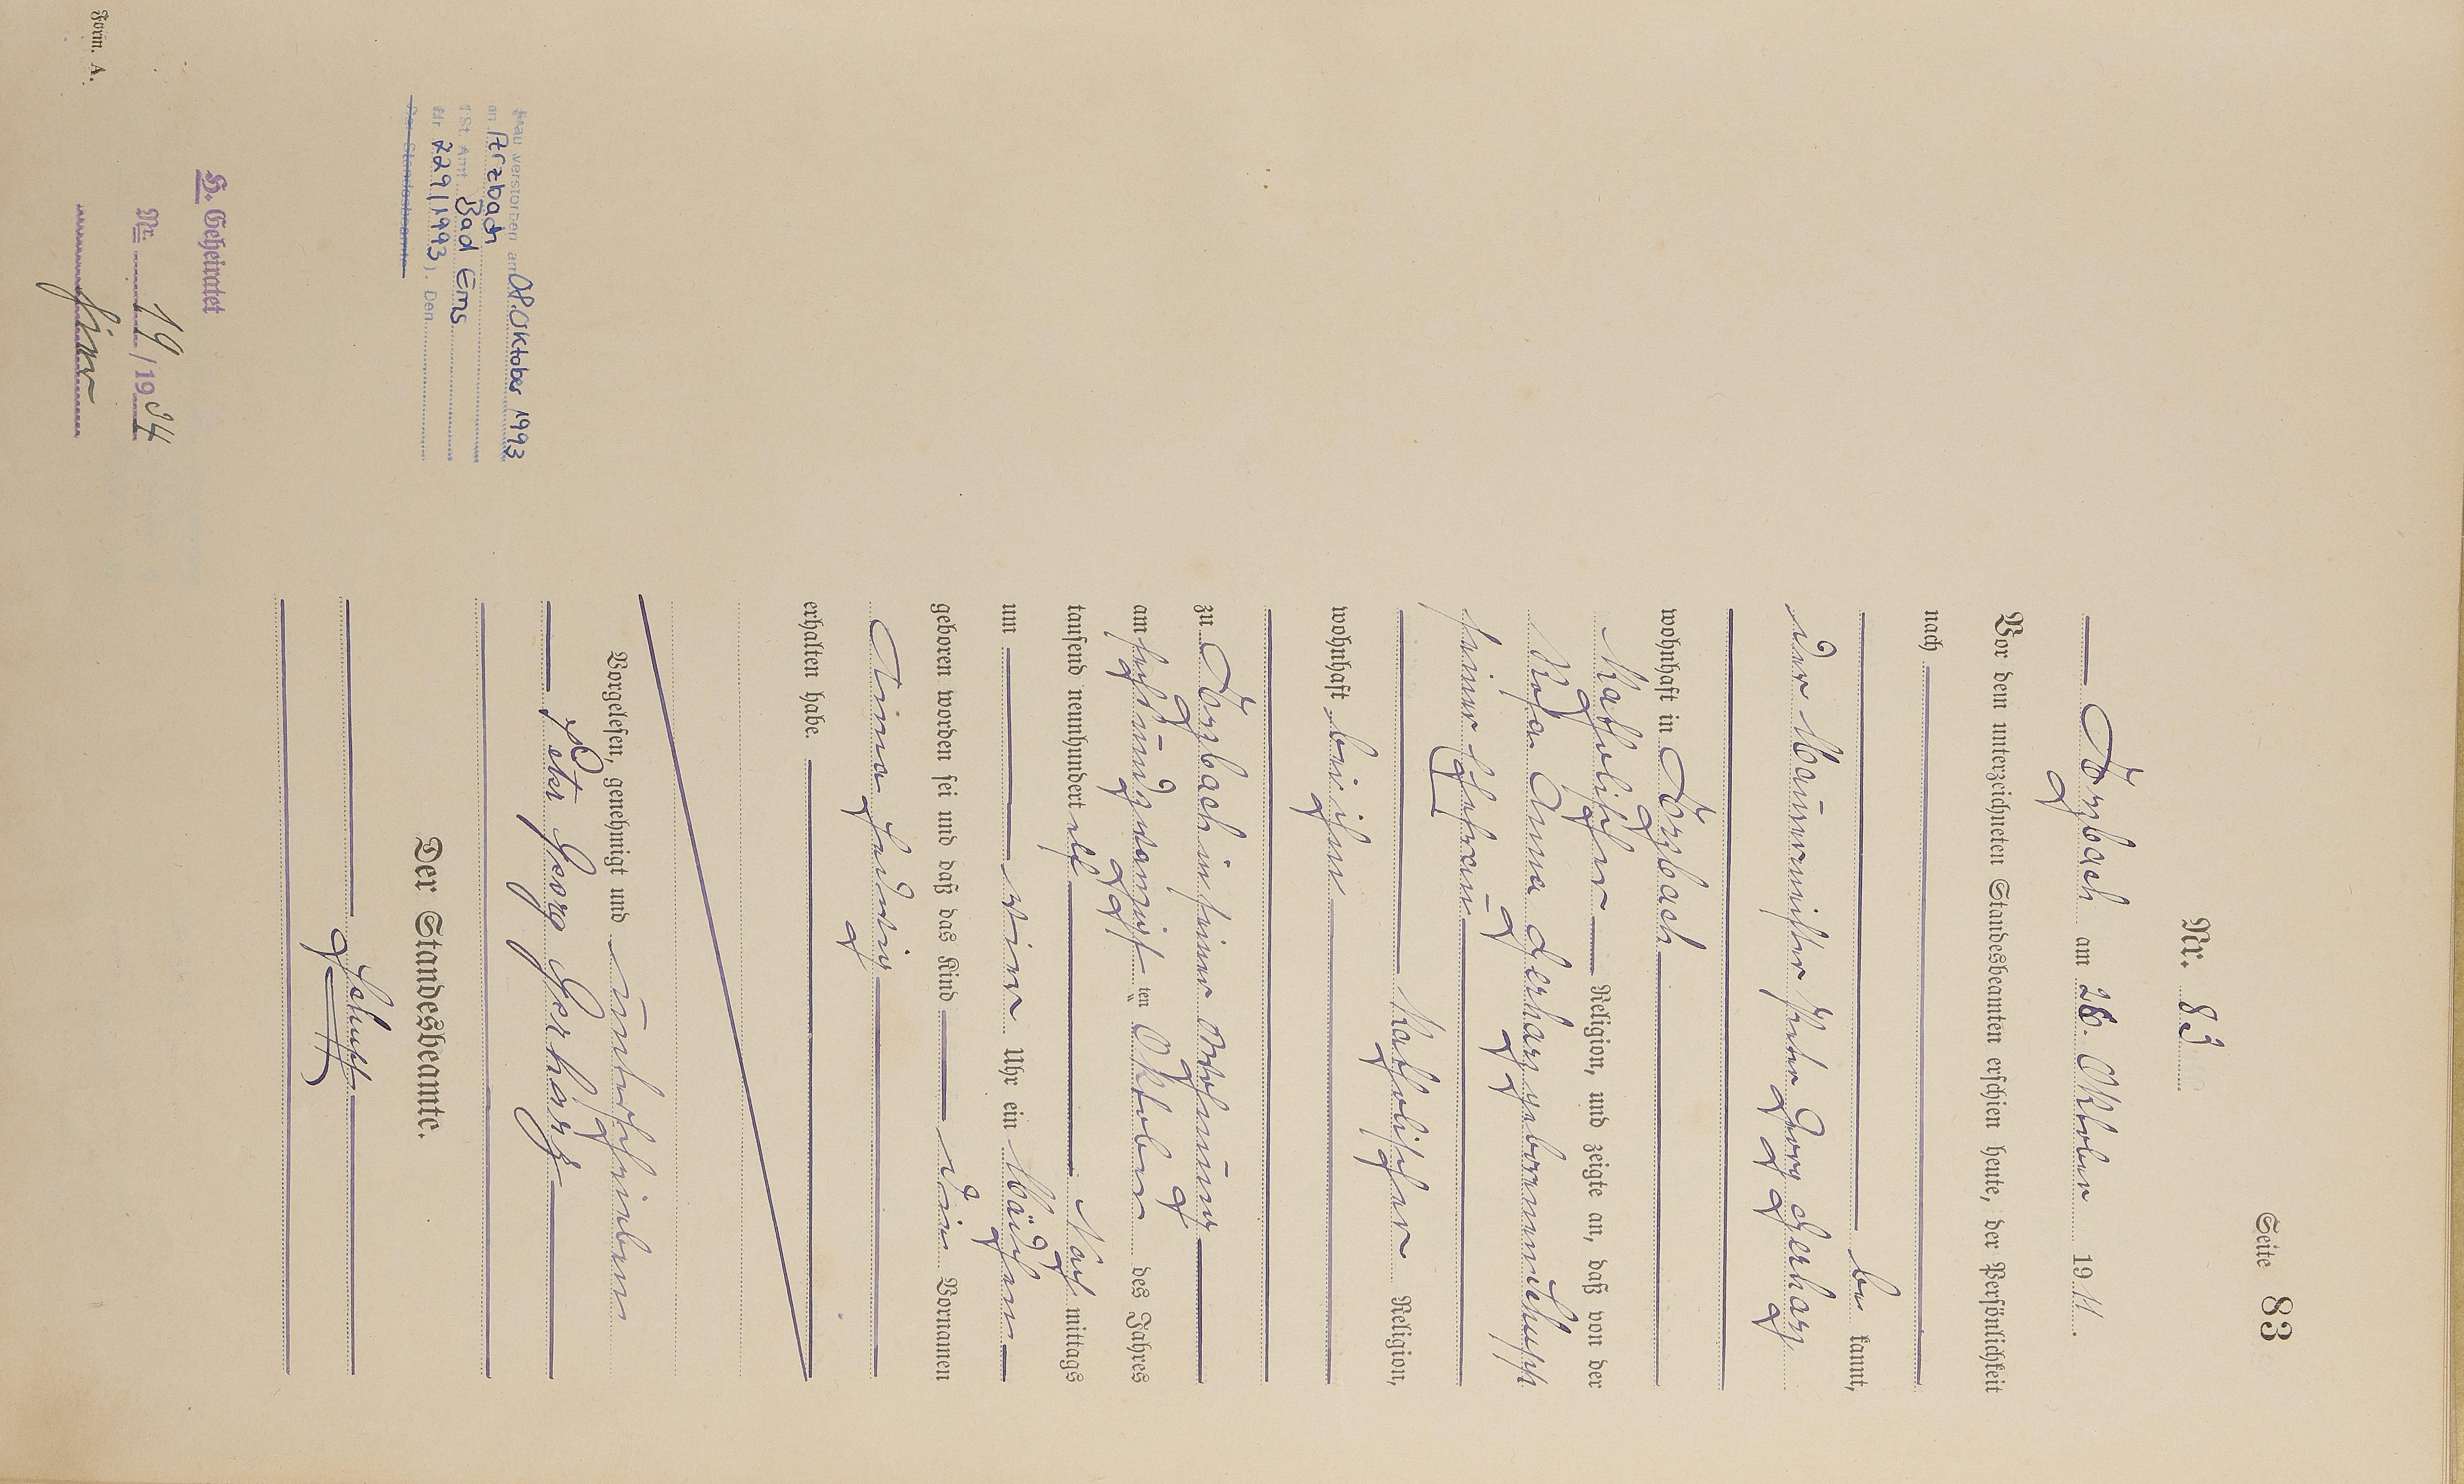 Seite 83
Nr. 83
Arzbach am 26. Oktober 1911.
Vor dem unterzeichneten Standesbeamten erschien heute, der Persönlichkeit
nach
be kannt,
der Maurermeister Peter Georg Gerharz
wohnhaft in Arzbach
katholischer Religion, und zeigte an, daß von der
Rosa Anna Gerharz geborenen Schupp
seiner Ehefrau
katholischer Religion,
wohnhaft bei ihm
zu Arzbach in seiner Wohnung
am sechsundzwanzigsten Oktober des Jahres
tausend neunhundert elf Nach mittags
um vier Uhr ein Mädchen
geboren worden sei und daß das Kind die Vornamen
Anna Hedwig
erhalten habe.
Vorgelesen, genehmigt und unterschrieben
Peter Georg Gerharz
Der Standesbeamte.
Frau verstorben am 08. Oktober 1993
in Arzbach
(St. Amt Bad Ems
Nr. 229/1993). Den
Der Standesbeamte
H. Geheiratet
Nr. 19/1934
hier
Form. A.